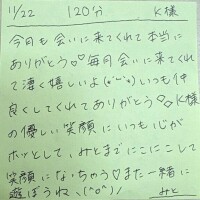 11/22 120分 K様
今月も会いに来てくれて本当に
ありがとう♡♡毎月会いに来てくれ
て凄く嬉しいよ(*´`*)いつも仲
良くしてくれてありがとう♡。K様
の優しい笑顔にいつも心が
ホッとして、みとまでにこにこして
笑顔になっちゃう♡また一緒に
遊ぼうね、(^o^)!
みと